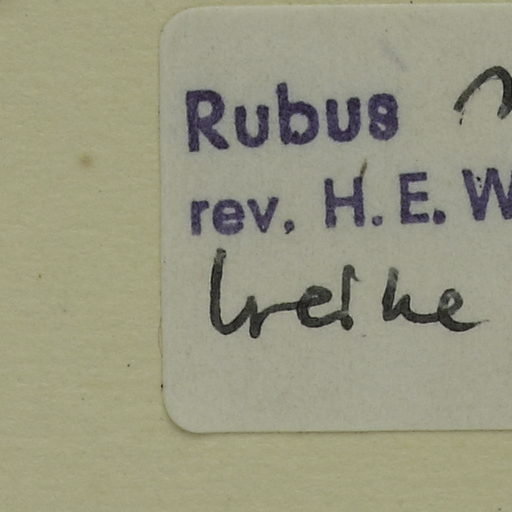 Rubus
rev. H. E. W
Weihe